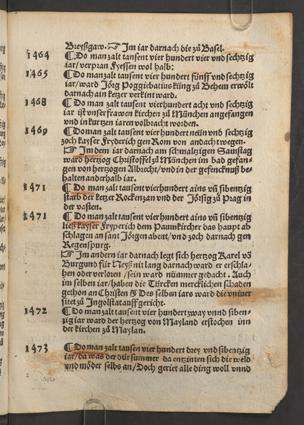 Breyßgaw. ☞ Im iar darnach die zů Basel.
1464 ¶ Do man zalt tausent vier hundert vier vnd sechtzig
iar/verpran Fressen wol halb:
1465 ¶ Do man zalt tausent vier hundert fünff vnd sechtzig
iar/ward Jörg Poggichatius küng zů Behem erwölt
darnach ain ketzer verkünt ward.
1468 ¶ Do man zalt tausent vierhundert acht vnd sechtzig
iar ist vnser frawen kirchen zů München angefangen
vnd in kurtzen iaren volbracht worden.
1469 ¶ Do man zalt tausent vierhundert neün vnd sechtzig
zoch kayser Friderich gen Rom von andacht wegen.
☞ In dem iar darnach am schmaltzigen Sanstag
ward hertzog Christoffel zů München im bad gefan-
gen von hertzogen Albrecht/vnd in der gefencknuß be-
halten anderhalb iar.
1471 ¶ Do man zalt tausent vierhundert ains vñ sibentzig
starb der ketzer Rockenzan vnd der Jörsig zů Prag in
der vasten.
1471 ¶ Do man zalt tausent vierhundert ains vñ sibentzig
ließ kayser Fryderich dem Paumkircher das haupt ab
schlagen an sant Jörgen abent/vnd zoch darnach gen
Regenspurg.
☞ Im andern iar darnach legt sich hertzog Karel võ
Burgund für Neyß mit lang darnach ward er erschla-
hen oder verloren/sein ward nümmer gedacht. Auch
im selben iar/haben die Türcken mercklichen schaden
gethon an Christen ¶ Des selben iars ward die vniuer
sitet zů Ingolstat auffgericht.
1472 ¶ Do man zalt tausent vierhundert zway vnnd siben-
tzig iar ward der hertzog von Mayland erstochen inn
der kirchen zů Maylan.
1473 ¶ Do man zalt tausen vier hundert drey vnd sibentzig
iar/da was der dür summer da entzinten sich die weld
vnd möder selbs an/Doch geriet alle ding woll vnnd